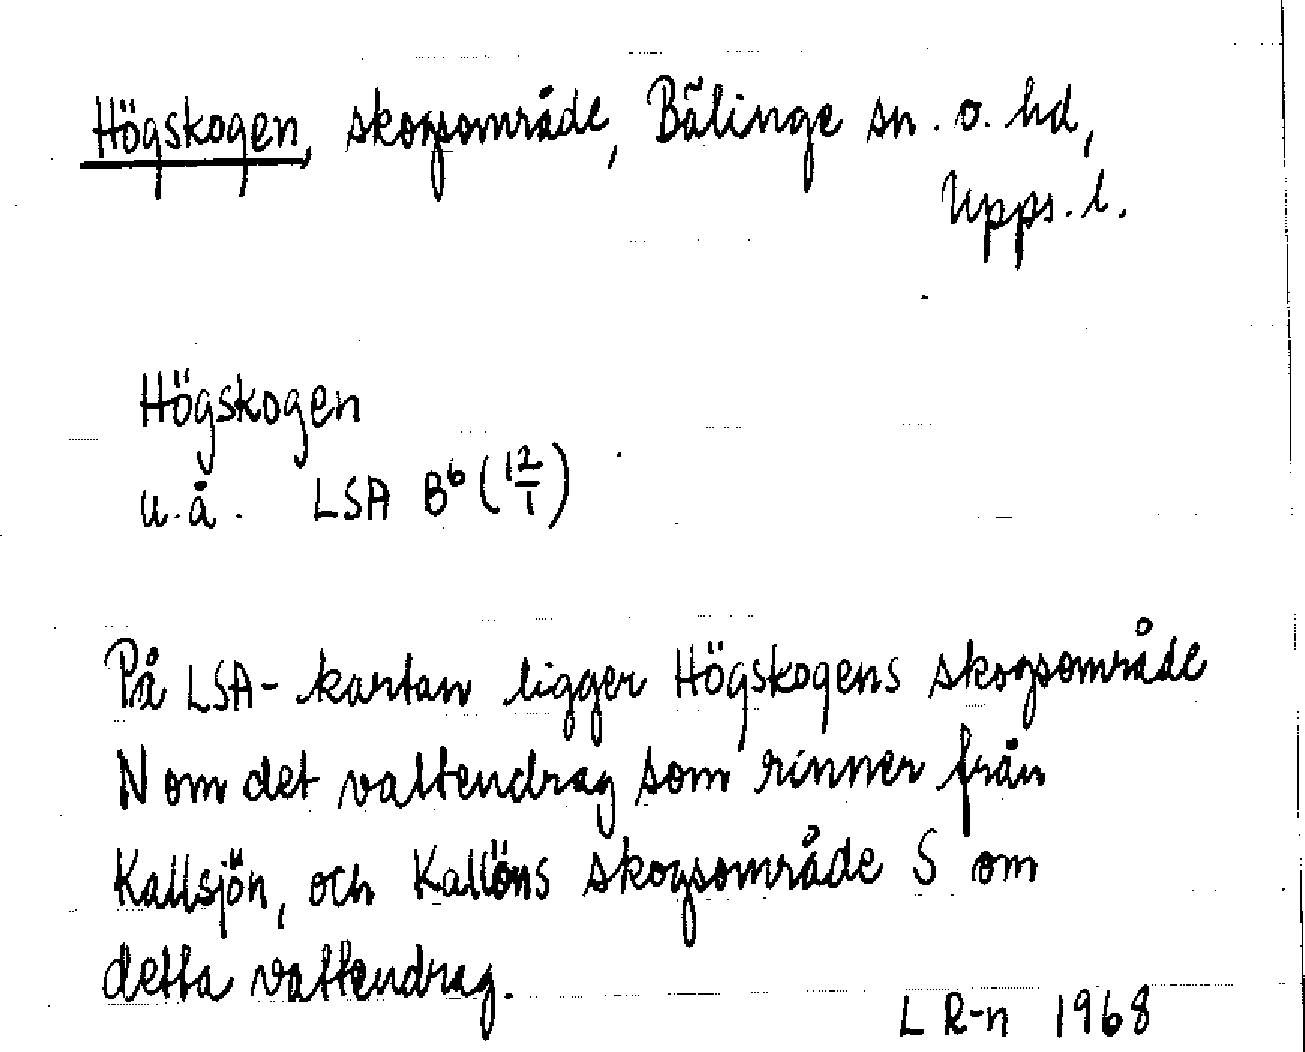 Högskogen, skogsområde, Bälinge sn. o. hd,
Upps. l.
Högskogen
u.å. LSA B6 (12/1)
På LSA-kartan ligger Högskogens skogsområde
N om det vattendrag som rinner från
Kallsjön, och Kallöns skogsområde S om
detta vattendrag.
L R-n 1968